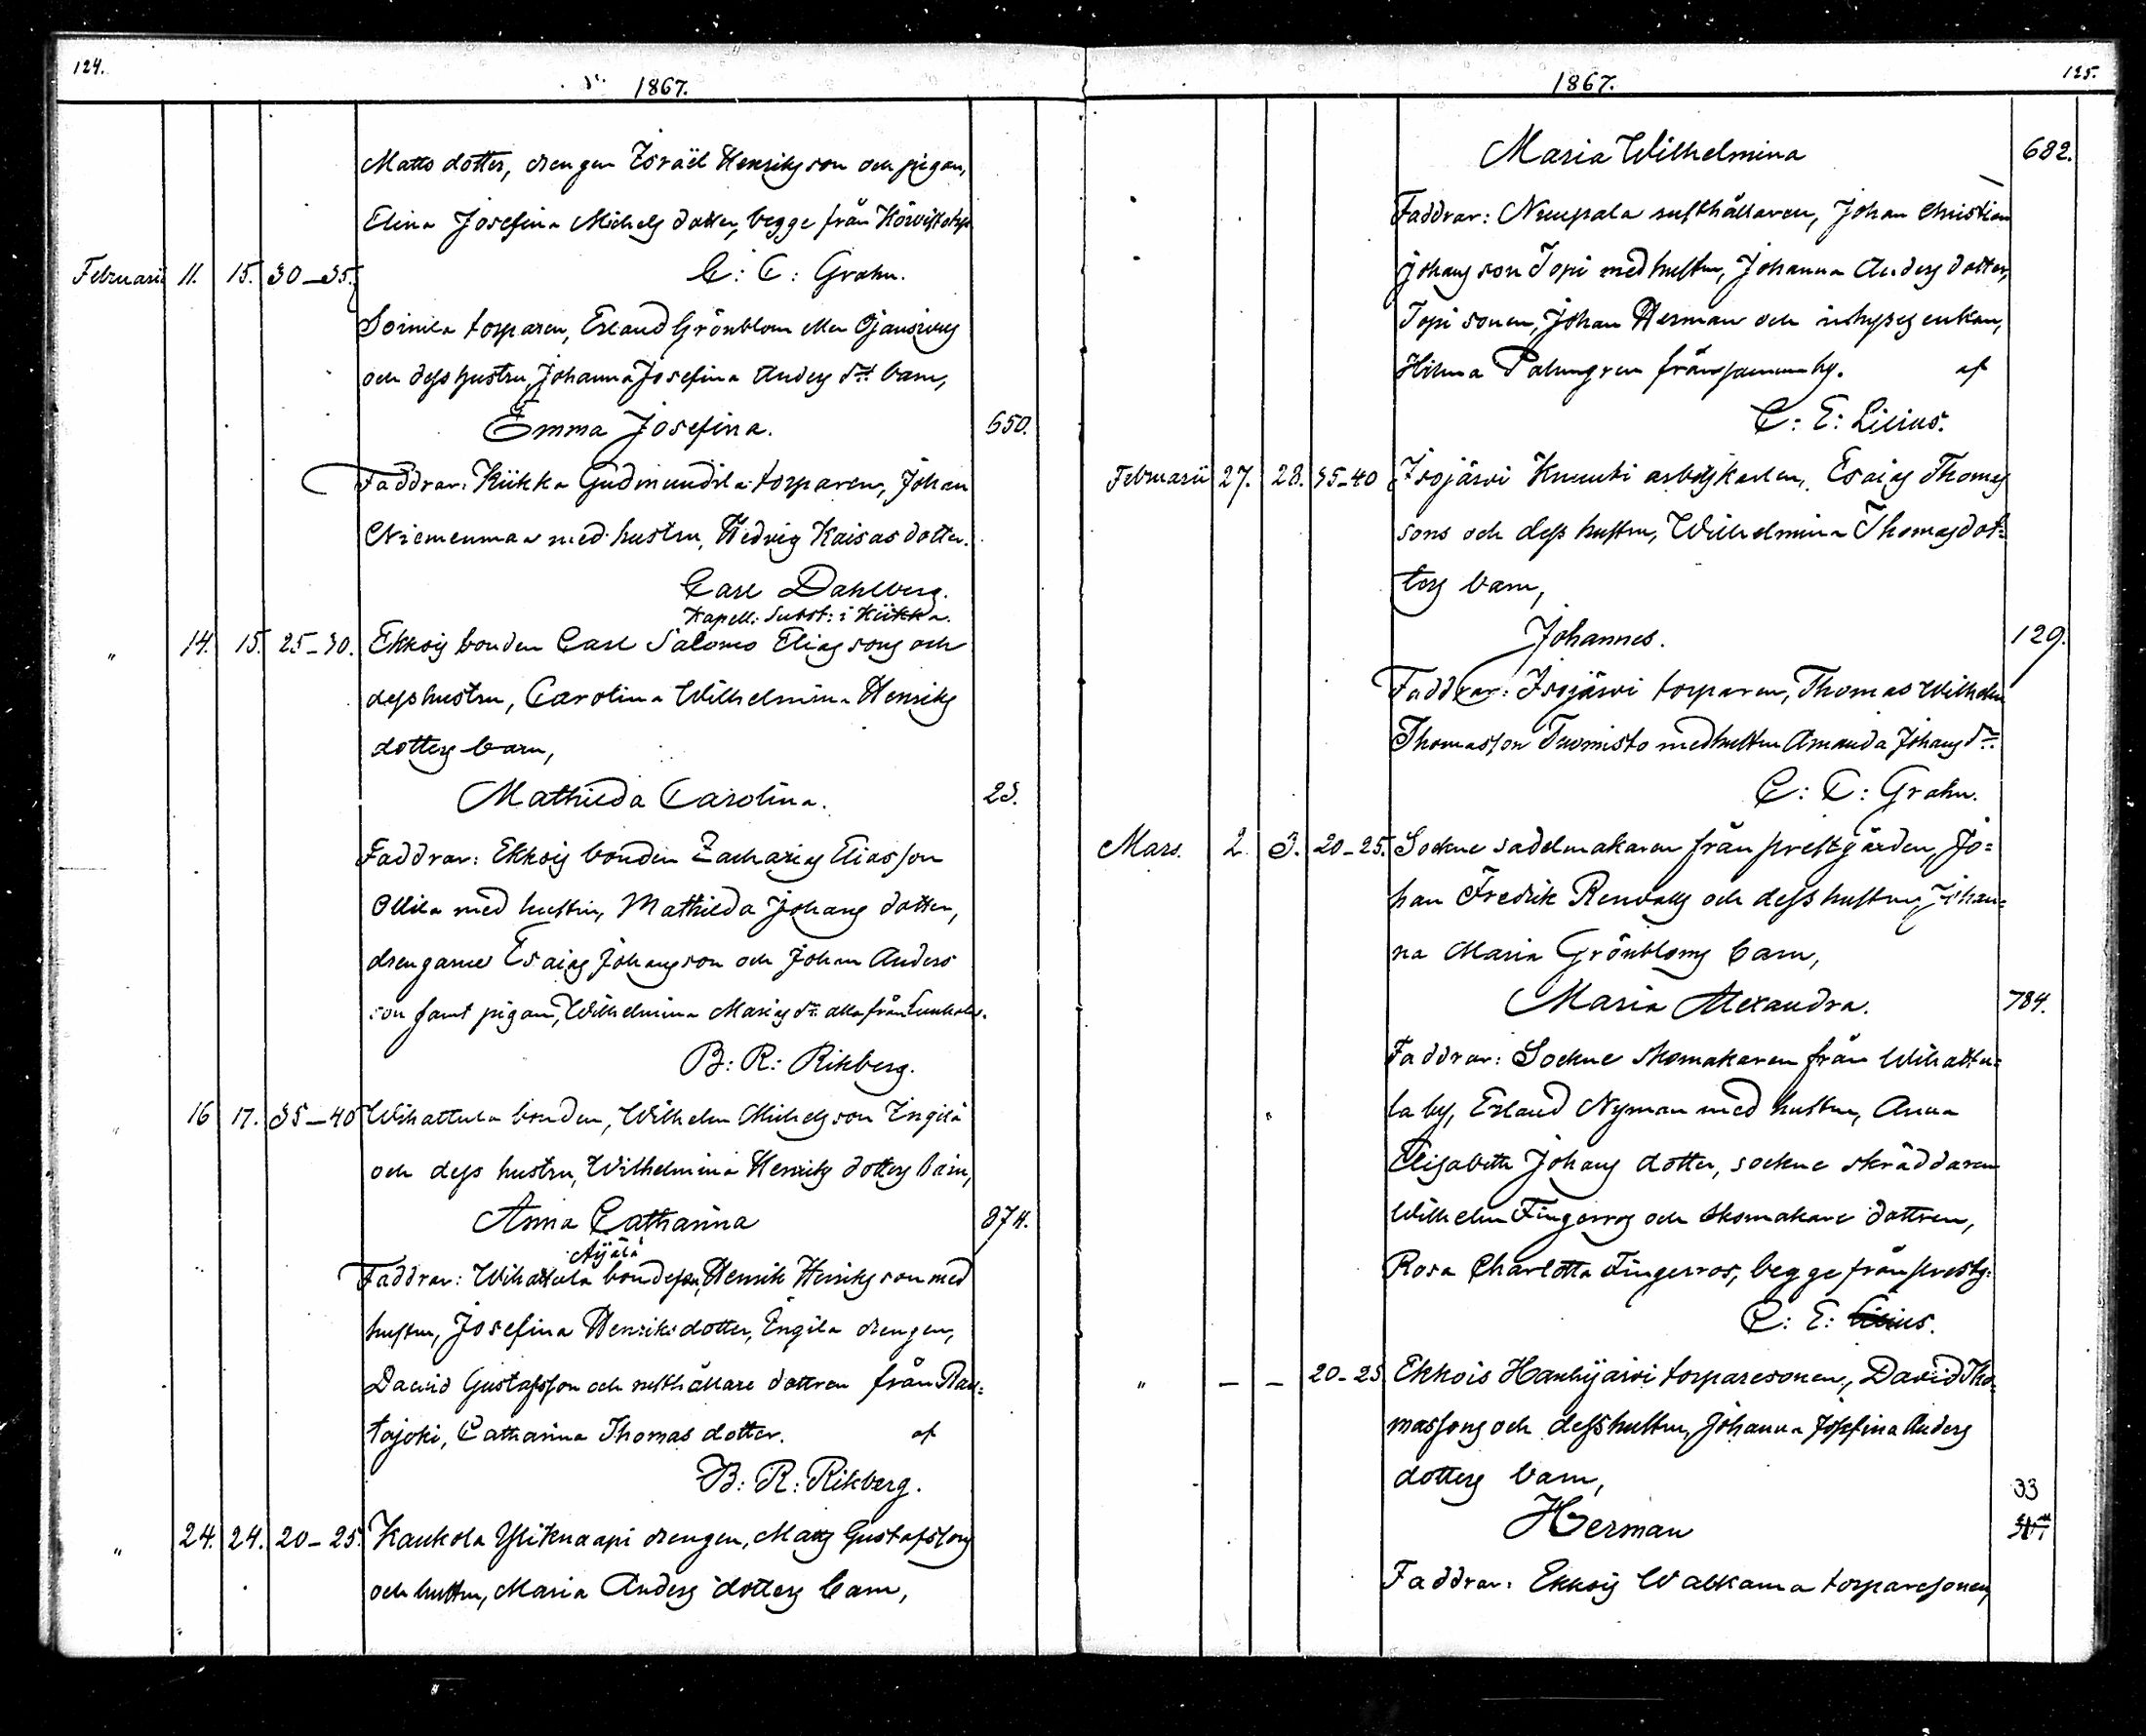 124.
1867.
Matts dotter, drengen Israël Henriksson och pigan,
Elina Josefina Michels dotter, begge från
C: C: Grahn.
Februarii 11. 15. 30–35.
Soinila torparen, Erland Grönblom eller
och dess hustru, Johanna Josefina Anders dr: barn,
Emma Josefina. 650.
Faddrar: Kiikka Gudmundila torparen, Johan
Niemenmaa med hustru, Hedvig Kaisas dotter.
Carl Dahlberg.
Kapell: Subst: i Kiikka.
" 14. 15. 25–30. Ekkois bonden Carl Salomo Eliassons och
dess hustru, Carolina Wilhelmina Henriks
dotters barn,
Mathilda Carolina. 23.
Faddrar: Ekkois bonden Zacharias Eliasson
Ollila med hustru, Mathilda Johans dotter,
drengarne Esaias Johansson och Johan Anders
son samt pigan, Wilhelmina Marias dr: alla från
B: R: Rikberg.
" 16 17. 35–40 Wihattula bonden, Wilhelm Michelsson Ingilä
och dess hustru, Wilhelmina Henriks dotters barn,
Anna Catharina 874.
Äijälä
Faddrar: Wihattula bondeson, Henrik Henriksson med
hustru, Josefina Henriksdotter, Ingilä drengen,
David Gustafsson och rusthållare dottren från Rau=
tajoki, Catharina Thomas dotter. af
B: R: Rikberg.
" 24. 24. 20–25. Kaukola Yliknaapi drengen, Matts Gustafssons
och hustru, Maria Anders dotters barn,
125.
1867.
Maria Wilhelmina 682.
Faddrar: Nuupala rusthållaren, Johan Christian
Johansson Topi med hustru, Johanna Anders dotter,
Topi sonen, Johan Herman och inhyses enkan,
Hilma Palmgren från samma by. af
C: E: Lilius.
Februarii 27. 28. 35–40 Isojärvi Knuuti arbetskarlen, Esaias Thomas
sons och dess hustru, Wilhelmina Thomasdot=
ters barn,
Johannes. 129.
Faddrar: Isojärvi torparen, Thomas Wilhelm
Thomasson Tuomisto med hustru Amanda Johans dr:
C: C: Grahn.
Mars. 2. 3. 20–25. Sockne sadelmakaren från prestgården, Jo=
han Fredrik Renvalls och dess hustrus, Johan=
na Maria Grönbloms barn,
Maria Alexandra. 784.
Faddrar: Sockne skomakaren från Wihattu=
la by, Erland Nyman med hustru, Anna
Elisabeth Johans dotter, sockne skräddaren
Wilhelm Fingerros och skomakare dottren,
Rosa Charlotta Fingerros, begge från prestg:
C: E: Lilius.
" – – 20–25. Ekkois Hanhijärvi torparesonen, David Tho=
massons och dess hustru, Johanna Josefina Anders
dotters barn,
33
Herman
Faddrar: Ekkois Walkama torparesonen,